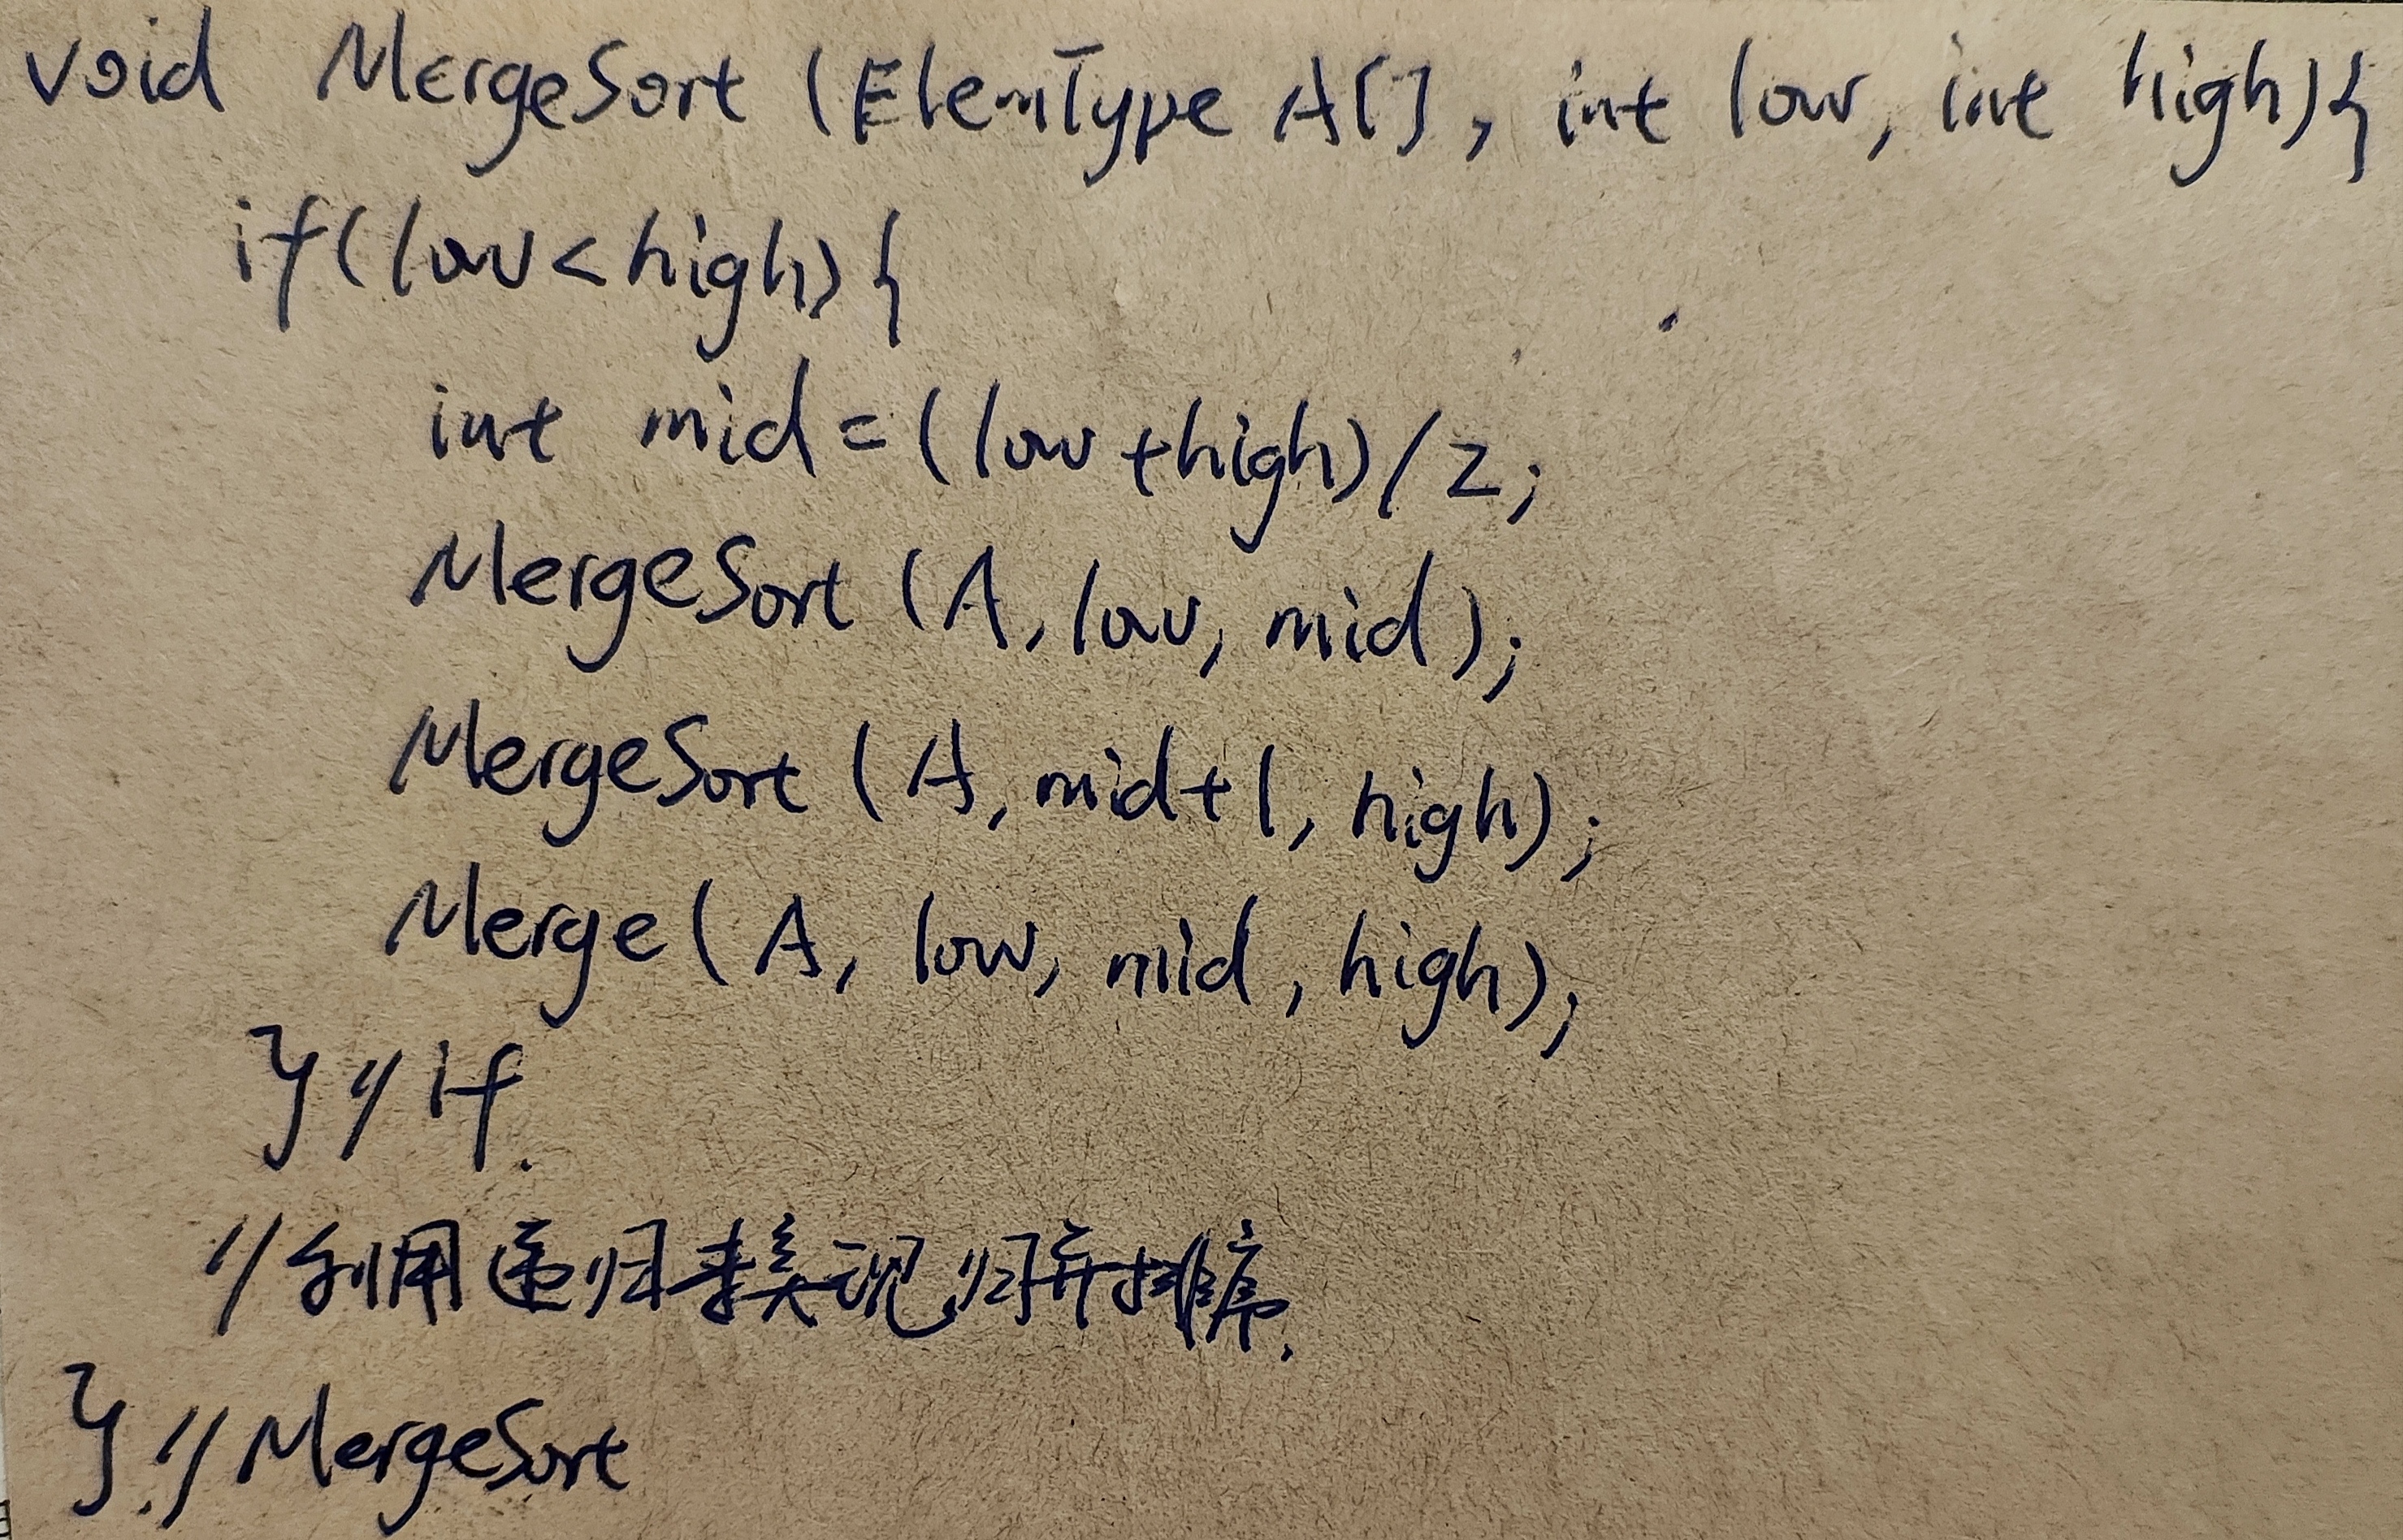 void MergeSort (ElemType A[], int low, int high){
if(low<high){
int mid=(low+high)/2;
MergeSort (A, low, mid);
MergeSort (A, mid+1, high);
Merge(A, low, mid, high);
}//if.
//利用递归来实现归并排序.
}.//MergeSort